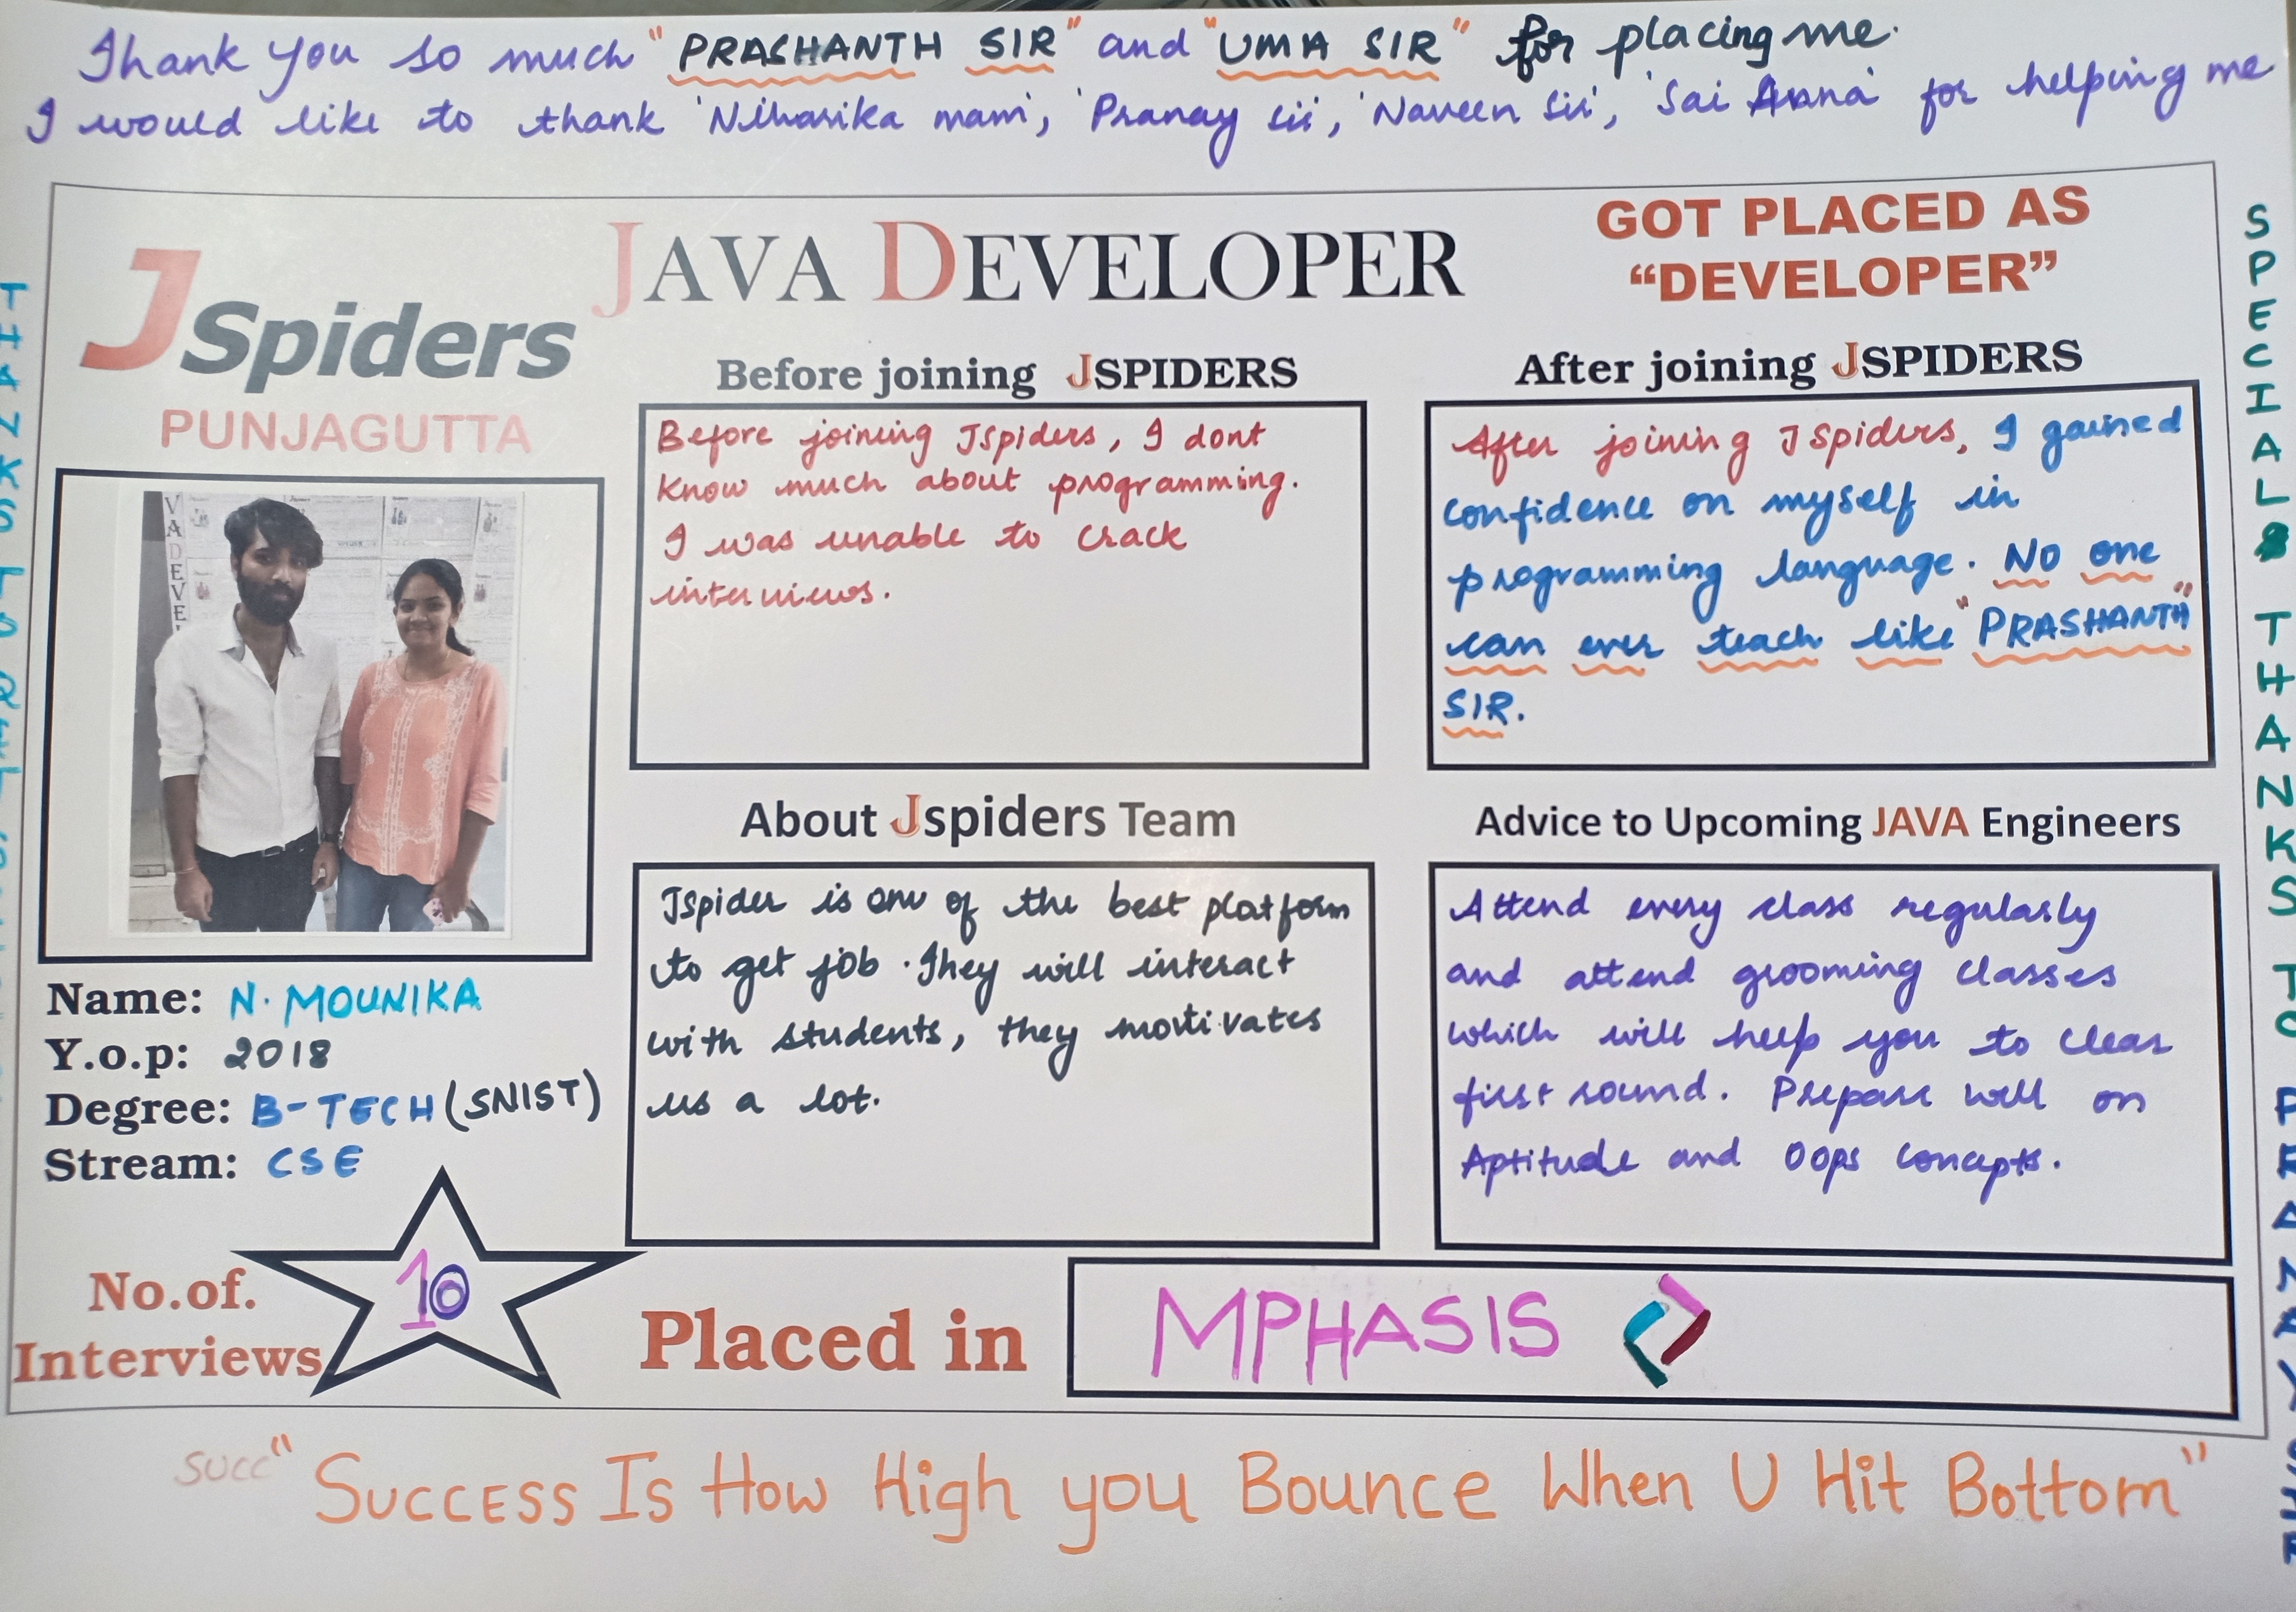 Thank you so much "PRASHANTH SIR" and "UMA SIR" for placing me.
I would like to thank 'Niharika mam', 'Pranay sir', 'Naveen sir', 'Sai Anna' for helping me
JSpiders
PUNJAGUTTA
JAVA DEVELOPER
GOT PLACED AS
“DEVELOPER”
Before joining JSPIDERS
Before joining Jspiders, I dont
know much about programming.
I was unable to crack
interviews.
After joining JSPIDERS
After joining JSpiders, I gained
confidence on myself in
programming language. No one
can ever teach like "PRASHANTH"
SIR.
VADEVEL
Name: N. MOUNIKA
Y.o.p: 2018
Degree: B-TECH (SNIST)
Stream: CSE
About Jspiders Team
Jspider is one of the best platform
to get job. They will interact
with students, they motivates
us a lot.
Advice to Upcoming JAVA Engineers
Attend every class regularly
and attend grooming classes
which will help you to clear
first round. Prepare well on
Aptitude and Oops concepts.
No.of.
Interviews
10
Placed in
MPHASIS
succ "SUCCESS IS HOW HIGH you BOUNCE WHEN U HIT BOTTOM"
THANKS TO
SPECIAL THANKS TO PRANAY SIR